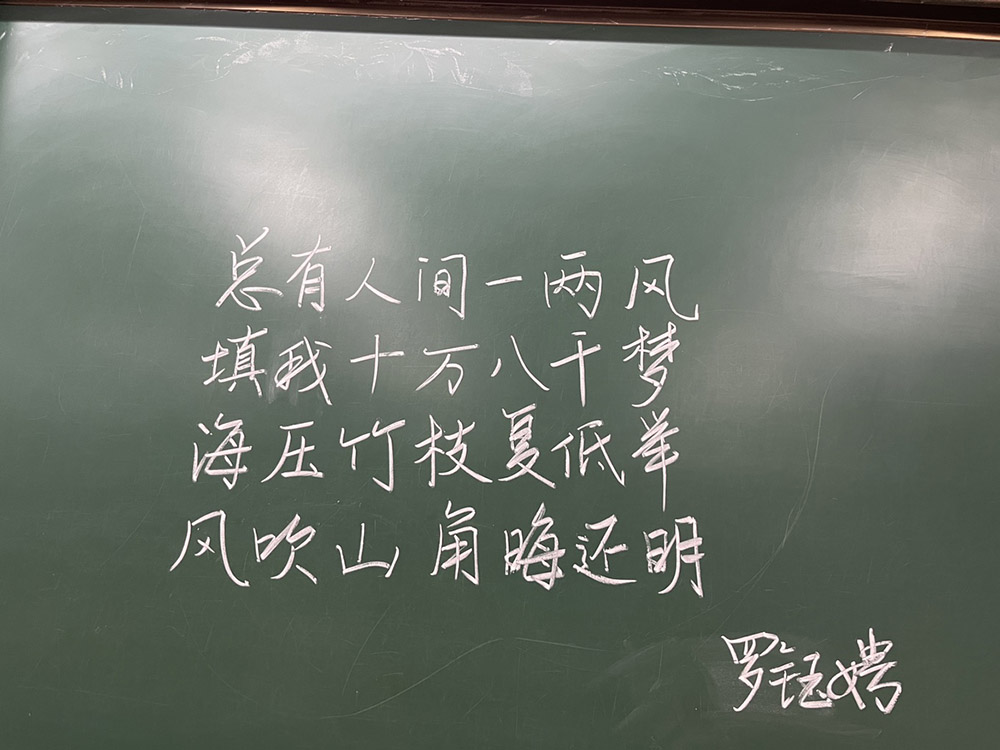 总有人间一两风
填我十万八千梦
海压竹枝夏低举
风吹山角晦还明
罗钰娉